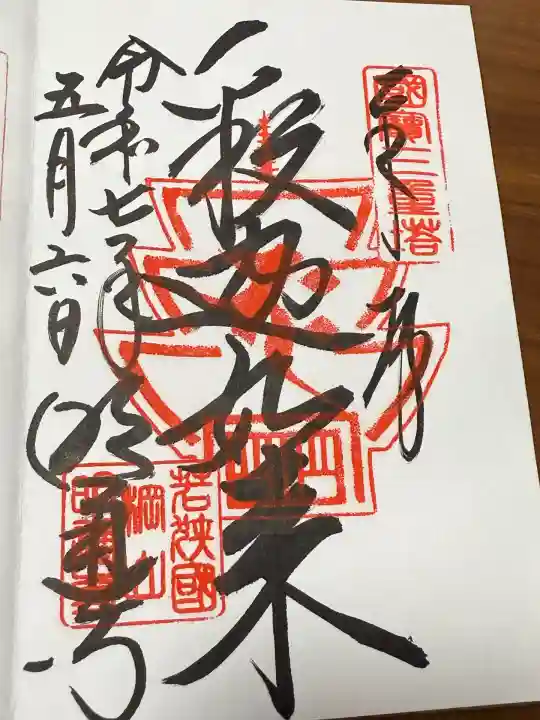 國寶三重塔
釈迦如来
令和七年
五月六日
明通寺
若狭國
棡山
明通寺